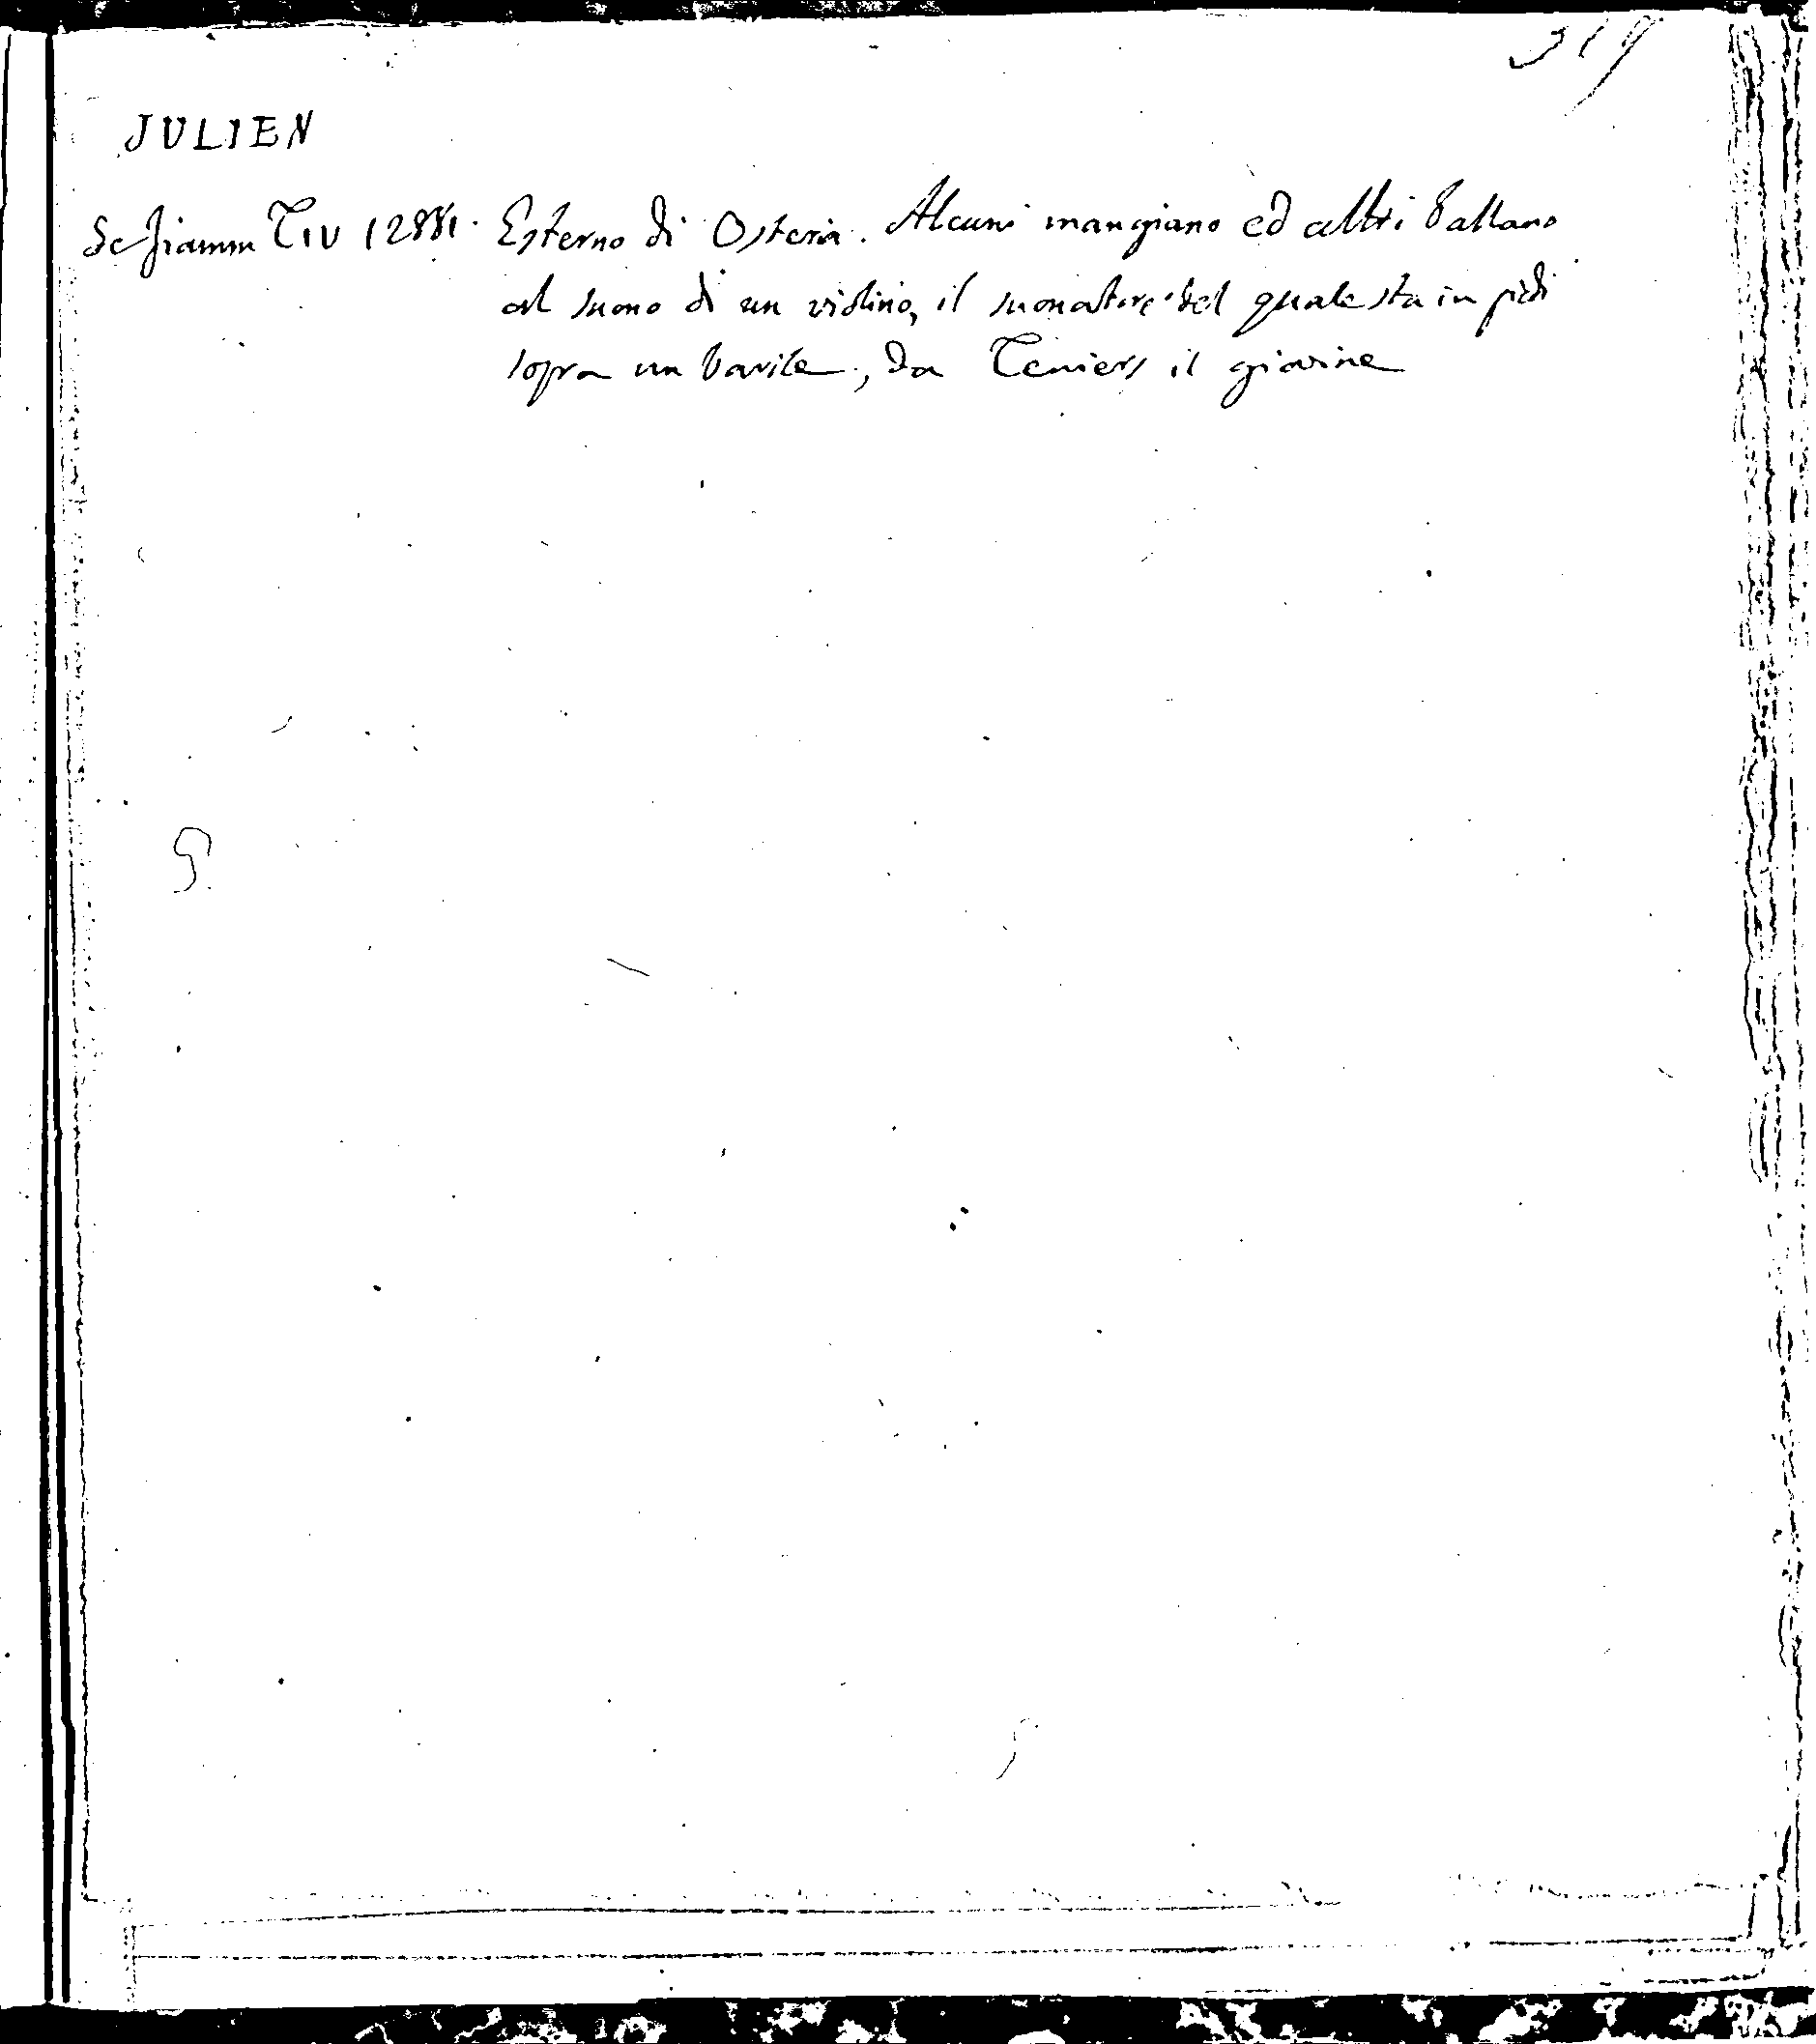 319
JULIEN
Sc fiamm T IV 12881. Esterno di Osteria. Alcuni mangiano ed altri ballano
al suono di un violino, il suonatore del quale sta in piedi
sopra un barile, da Teniers il giovine